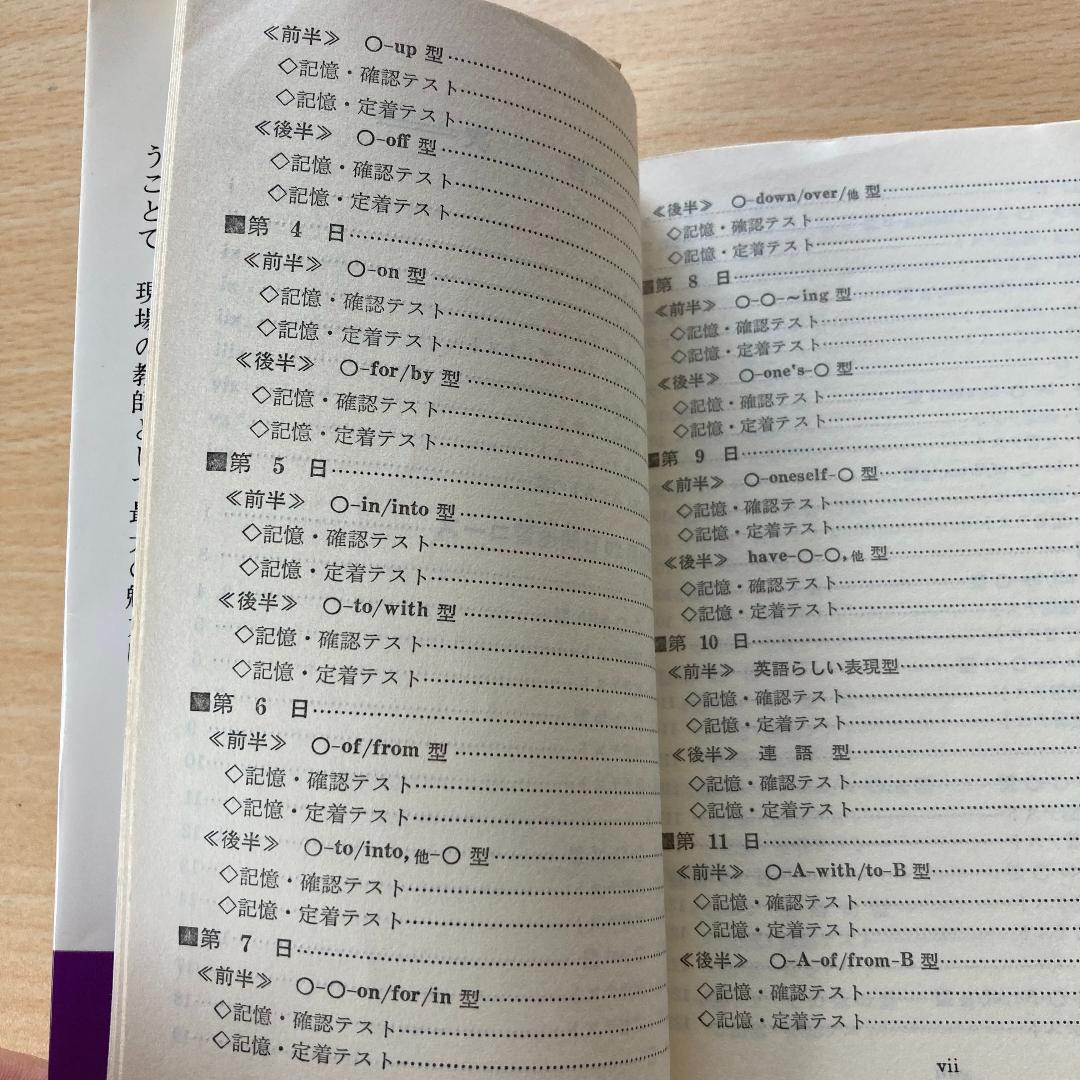 ≪前半≫ ○-up 型
◇記憶・確認テスト
◇記憶・定着テスト
≪後半≫ ○-off 型
◇記憶・確認テスト
◇記憶・定着テスト
■第 4 日
≪前半≫ ○-on 型
◇記憶・確認テスト
◇記憶・定着テスト
≪後半≫ ○-for/by 型
◇記憶・確認テスト
◇記憶・定着テスト
■第 5 日
≪前半≫ ○-in/into 型
◇記憶・確認テスト
◇記憶・定着テスト
≪後半≫ ○-to/with 型
◇記憶・確認テスト
◇記憶・定着テスト
■第 6 日
≪前半≫ ○-of/from 型
◇記憶・確認テスト
◇記憶・定着テスト
≪後半≫ ○-to/into,他-○ 型
◇記憶・確認テスト
◇記憶・定着テスト
■第 7 日
≪前半≫ ○-○-on/for/in 型
◇記憶・確認テスト
◇記憶・定着テスト
≪後半≫ ○-down/over/他 型
◇記憶・確認テスト
◇記憶・定着テスト
■第 8 日
≪前半≫ ○-○-~ing 型
◇記憶・確認テスト
◇記憶・定着テスト
≪後半≫ ○-one's-○ 型
◇記憶・確認テスト
◇記憶・定着テスト
■第 9 日
≪前半≫ ○-oneself-○ 型
◇記憶・確認テスト
◇記憶・定着テスト
≪後半≫ have-○-○,他 型
◇記憶・確認テスト
◇記憶・定着テスト
■第 10 日
≪前半≫ 英語らしい表現型
◇記憶・確認テスト
◇記憶・定着テスト
≪後半≫ 連 語 型
◇記憶・確認テスト
◇記憶・定着テスト
■第 11 日
≪前半≫ ○-A-with/to-B 型
◇記憶・確認テスト
◇記憶・定着テスト
≪後半≫ ○-A-of/from-B 型
◇記憶・確認テスト
◇記憶・定着テスト
vii
うことで 現場の教師として